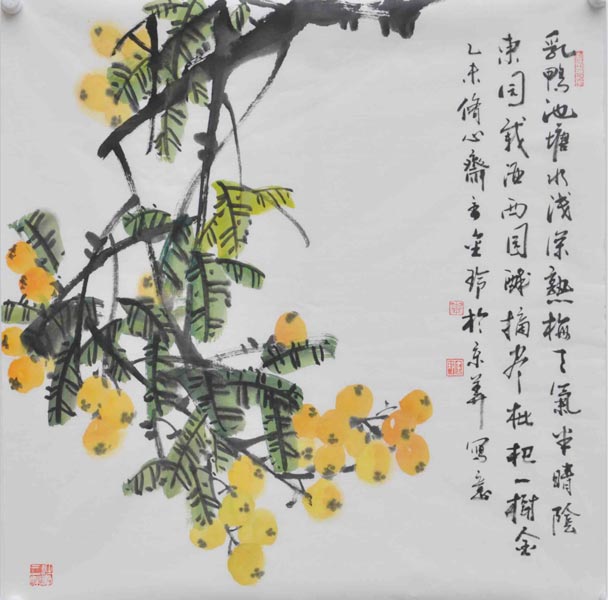 乳鸭池塘水浅深熟梅天氣半晴陰
東园载酒西园醉摘尽枇杷一樹金
乙未脩心齋主金玲於京華寫意